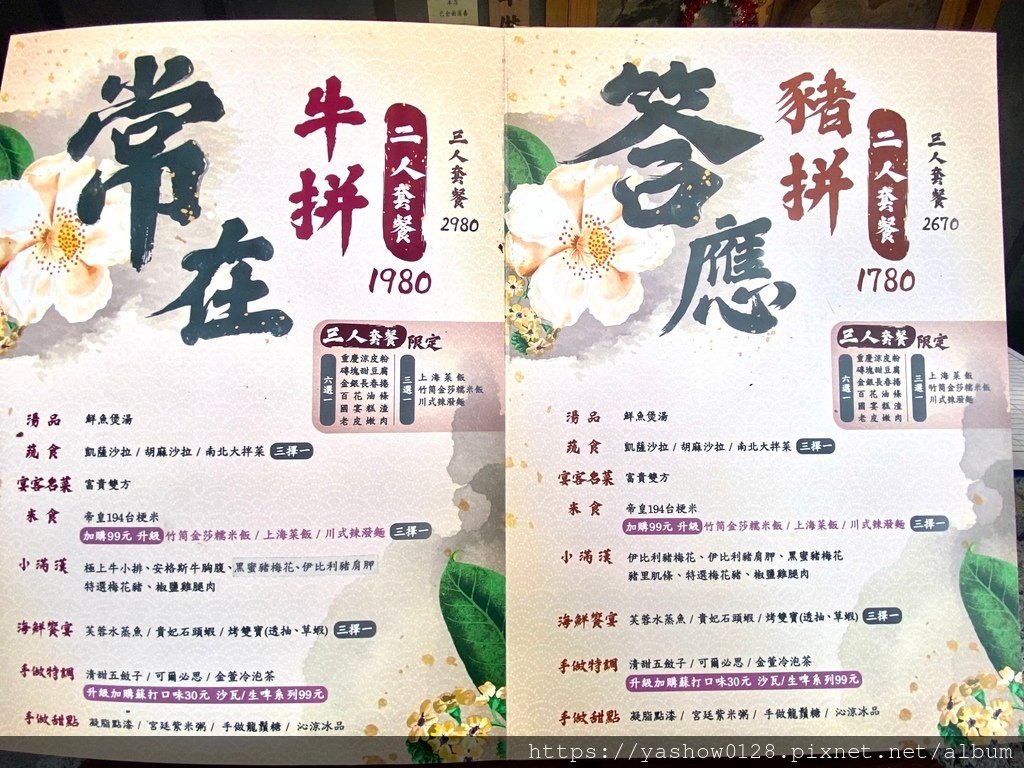 常在
牛拼
二人套餐
1980
三人套餐
2980
三人套餐 限定
六選一
重慶涼皮粉
磚塊甜豆腐
金銀長春捲
百花油條
國宴糕渣
老皮嫩肉
三選一
上海菜飯
竹筒金莎糯米飯
川式辣潑麵
湯品 鮮魚煲湯
蔬食 凱薩沙拉 / 胡麻沙拉 / 南北大拌菜 三擇一
宴客名菜 富貴雙方
米食 帝皇194台梗米
加購99元 升級 竹筒金莎糯米飯 / 上海菜飯 / 川式辣潑麵 三擇一
小滿漢 極上牛小排、安格斯牛胸腹、黑蜜豬梅花、伊比利豬肩胛
特選梅花豬、椒鹽雞腿肉
海鮮饗宴 芙蓉水蒸魚 / 貴妃石頭蝦 / 烤雙寶(透抽、草蝦) 三擇一
手做特調 清甜五斂子 / 可爾必思 / 金萱冷泡茶
升級加購蘇打口味30元 沙瓦/生啤系列99元
手做甜點 凝脂點漆 / 宮廷紫米粥 / 手做龍鬚糖 / 沁涼冰品
答應
豬拼
二人套餐
1780
三人套餐
2670
三人套餐 限定
六選一
重慶涼皮粉
磚塊甜豆腐
金銀長春捲
百花油條
國宴糕渣
老皮嫩肉
三選一
上海菜飯
竹筒金莎糯米飯
川式辣潑麵
湯品 鮮魚煲湯
蔬食 凱薩沙拉 / 胡麻沙拉 / 南北大拌菜 三擇一
宴客名菜 富貴雙方
米食 帝皇194台梗米
加購99元 升級 竹筒金莎糯米飯 / 上海菜飯 / 川式辣潑麵 三擇一
小滿漢 伊比利豬梅花、伊比利豬肩胛、黑蜜豬梅花
豬里肌條、特選梅花豬、椒鹽雞腿肉
海鮮饗宴 芙蓉水蒸魚 / 貴妃石頭蝦 / 烤雙寶(透抽、草蝦) 三擇一
手做特調 清甜五斂子 / 可爾必思 / 金萱冷泡茶
升級加購蘇打口味30元 沙瓦/生啤系列99元
手做甜點 凝脂點漆 / 宮廷紫米粥 / 手做龍鬚糖 / 沁涼冰品
https://yashow0128.pixnet.net/album